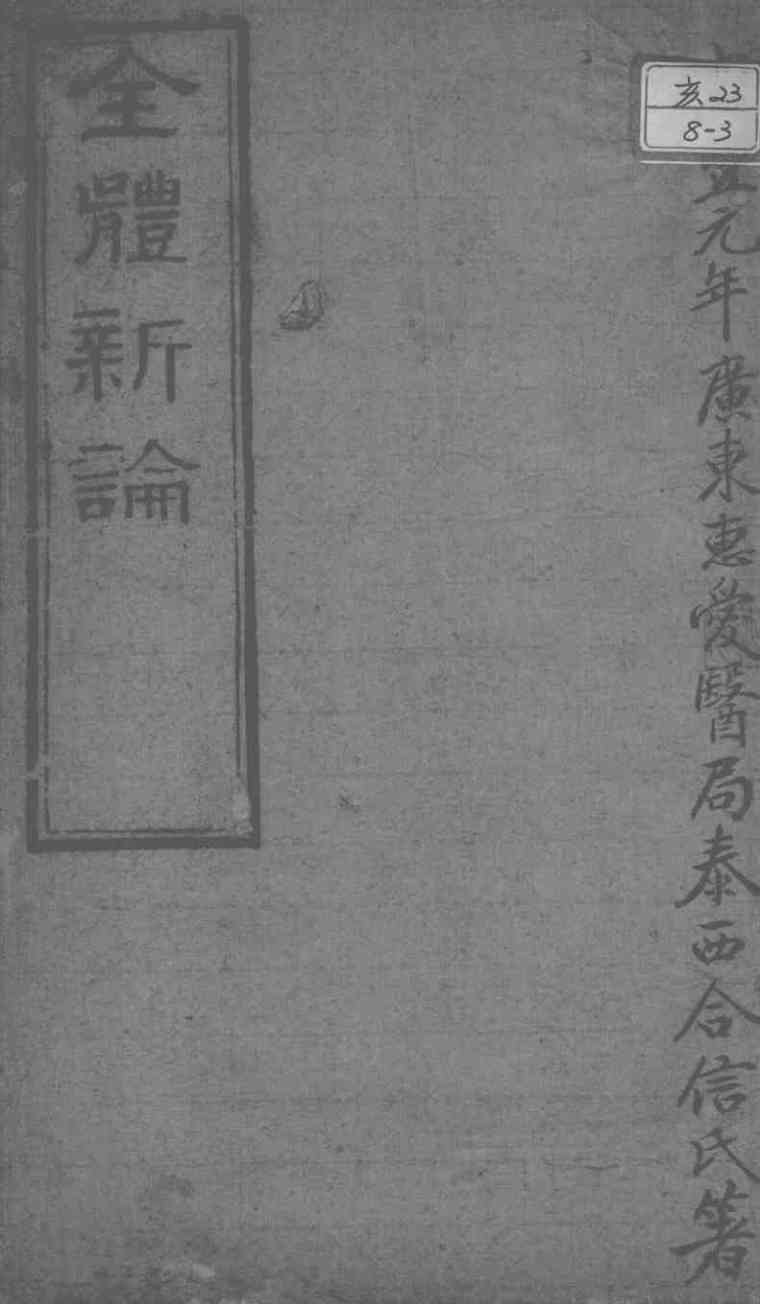 亥23
8-3
元年廣東惠愛醫局泰西合信氏著
全體新論